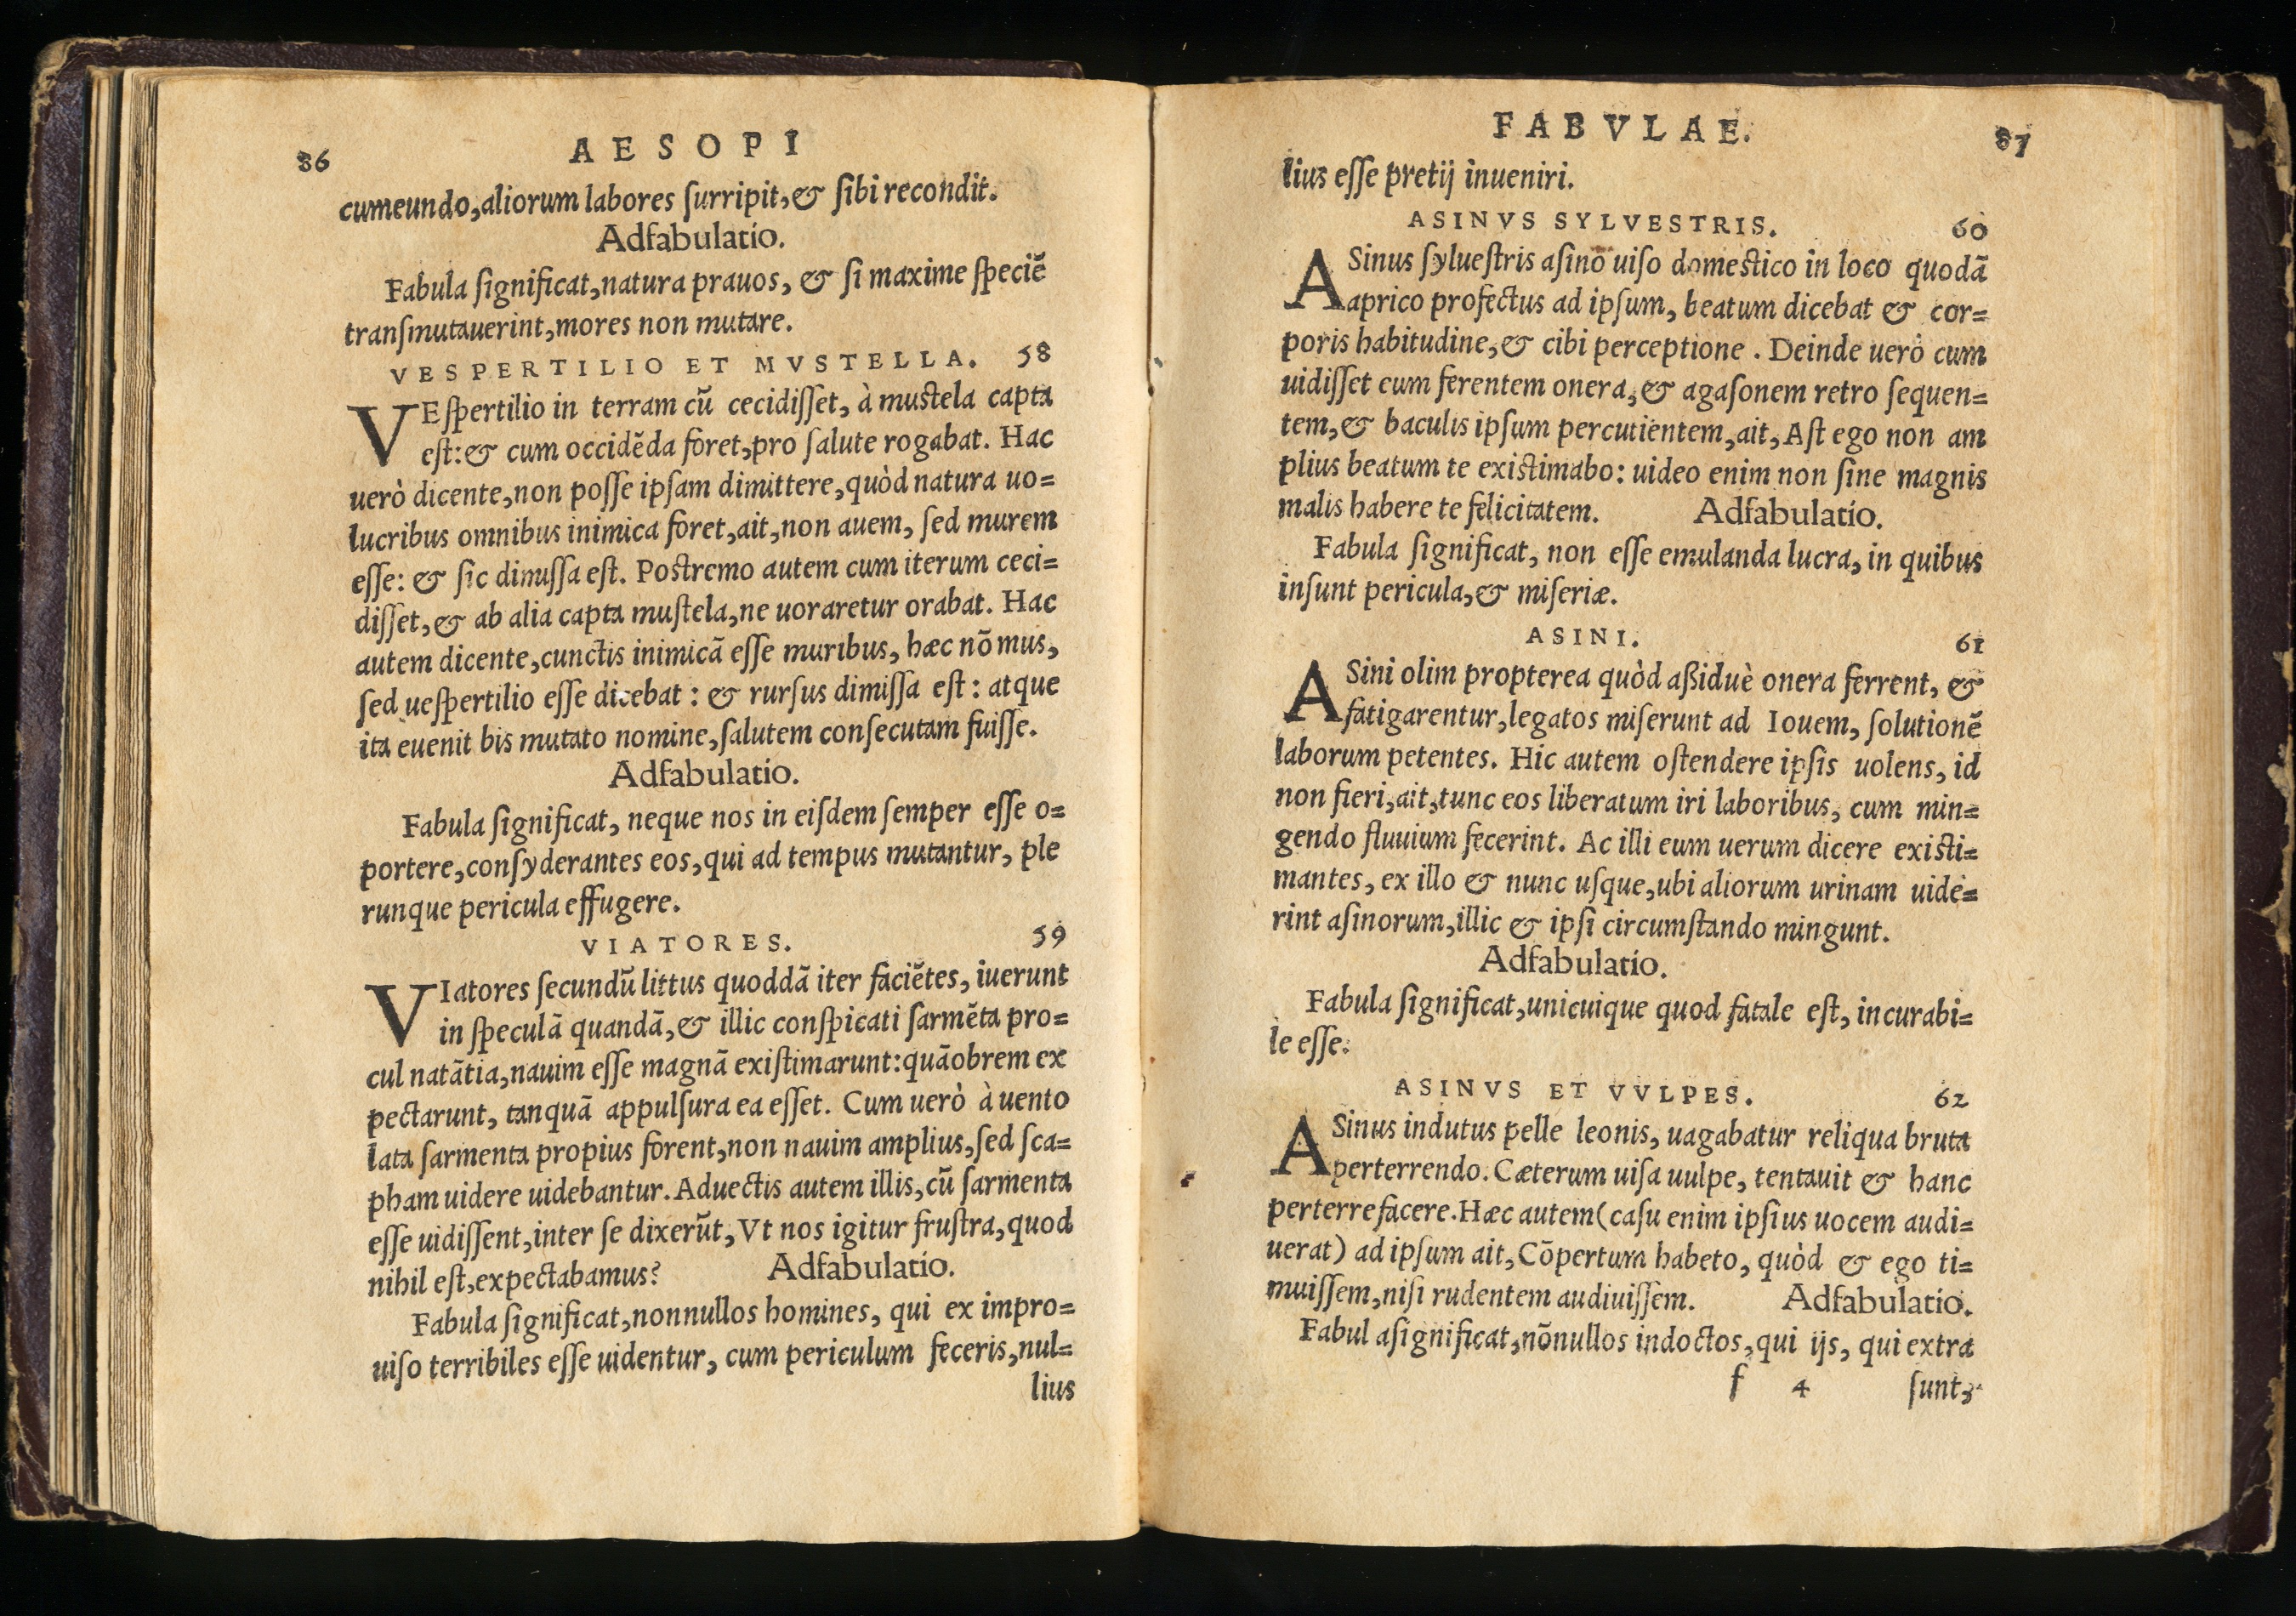 86 AESOPI
cumeundo, aliorum labores ſurripit, & ſibi recondit.
Adfabulatio.
Fabula ſignificat, natura prauos, & ſi maxime ſpeciẽ
tranſmutauerint, mores non mutare.
VESPERTILIO ET MVSTELLA. 58
VEſpertilio in terram cũ cecidiſſet, à mustela capta
est: & cum occidẽda foret, pro ſalute rogabat. Hac
uerò dicente, non poſſe ipſam dimittere, quòd natura uo=
lucribus omnibus inimica foret, ait, non auem, ſed murem
eſſe: & ſic dimiſſa eſt. Postremo autem cum iterum ceci=
diſſet, & ab alia capta muſtela, ne uoraretur orabat. Hac
autem dicente, cunctis inimicã eſſe muribus, hæc nõ mus,
ſed ueſpertilio eſſe dicebat: & rurſus dimiſſa eſt: atque
ita euenit bis mutato nomine, ſalutem conſecutam fuiſſe.
Adfabulatio.
Fabula ſignificat, neque nos in eiſdem ſemper eſſe o=
portere, conſyderantes eos, qui ad tempus mutantur, ple
runque pericula effugere.
VIATORES. 59
VIatores ſecundũ littus quoddã iter faciẽtes, iuerunt
in ſpeculã quandã, & illic conſpicati ſarmẽta pro=
cul natãtia, nauim eſſe magnã exiſtimarunt: quãobrem ex
pectarunt, tanquã appulſura ea eſſet. Cum uerò à uento
lata ſarmenta propius forent, non nauim amplius, ſed ſca=
pham uidere uidebantur. Aduectis autem illis, cũ ſarmenta
eſſe uidiſſent, inter ſe dixerũt, Vt nos igitur fruſtra, quod
nihil eſt, expectabamus? Adfabulatio.
Fabula ſignificat, nonnullos homines, qui ex impro=
uiſo terribiles eſſe uidentur, cum periculum feceris, nul=
lius
FABVLAE. 87
lius eſſe pretij inueniri.
ASINVS SYLVESTRIS. 60
ASinus ſylueſtris aſino uiſo domestico in loco quodã
aprico profectus ad ipſum, beatum dicebat & cor=
poris habitudine, & cibi perceptione. Deinde uerò cum
uidiſſet eum ferentem onera, & agaſonem retro ſequen=
tem, & baculis ipſum percutientem, ait, Aſt ego non am
plius beatum te existimabo: uideo enim non ſine magnis
malis habere te felicitatem. Adfabulatio.
Fabula ſignificat, non eſſe emulanda lucra, in quibus
inſunt pericula, & miſeriæ.
ASINI. 61
ASini olim propterea quòd aßiduè onera ferrent, &
fatigarentur, legatos miſerunt ad Iouem, ſolutionẽ
laborum petentes. Hic autem oſtendere ipſis uolens, id
non fieri, ait, tunc eos liberatum iri laboribus, cum min=
gendo fluuium fecerint. Ac illi eum uerum dicere existi=
mantes, ex illo & nunc uſque, ubi aliorum urinam uide=
rint aſinorum, illic & ipſi circumſtando mingunt.
Adfabulatio.
Fabula ſignificat, unicuique quod fatale eſt, incurabi=
le eſſe.
ASINVS ET VVLPES. 62
ASinus indutus pelle leonis, uagabatur reliqua bruta
perterrendo. Cæterum uiſa uulpe, tentauit & hanc
perterrefacere. Hæc autem (caſu enim ipſius uocem audi=
uerat) ad ipſum ait, Cõpertum habeto, quòd & ego ti=
muiſſem, niſi rudentem audiuiſſem. Adfabulatio.
Fabul aſignificat, nõnullos indoctos, qui ijs, qui extra
f 4 ſunt,